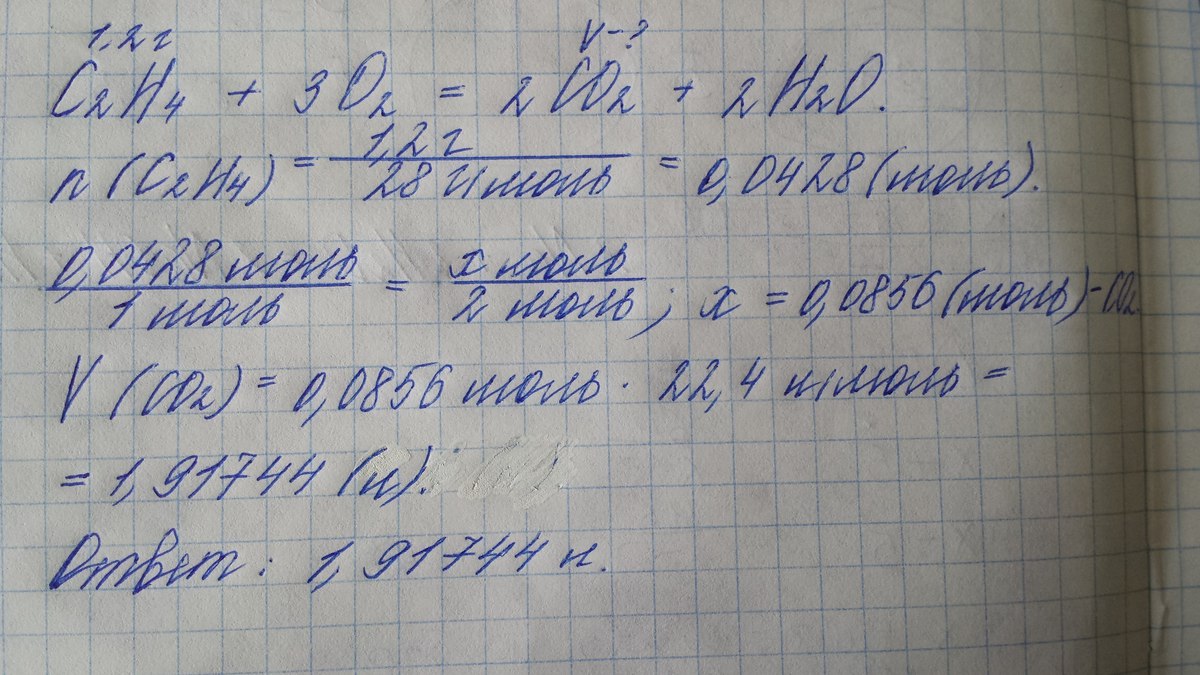 1,2 г V-?
C2H4 + 3O2 = 2CO2 + 2H2O.
n (C2H4) = 1,2 г / 28 г/моль = 0,0428 (моль).
0,0428 моль / 1 моль = x моль / 2 моль ; x = 0,0856 (моль) - CO2.
V (CO2) = 0,0856 моль · 22,4 л/моль =
= 1,91744 (л).
Ответ: 1,91744 л.